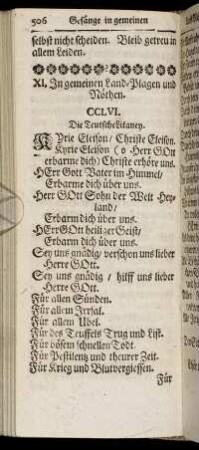 506 Gesänge in gemeinen
selbst nicht scheiden. Bleib getreu in
allem Leiden.
XI. In gemeinen Land-Plagen und
Nöthen.
CCLVI.
Die Teutsche Litaney.
KYrie Eleison/ Christe Eleison.
Kyrie Eleison (o Herr GOtt
erbarme dich) Christe erhöre uns.
HErr Gott Vater im Himmel/
Erbarme dich über uns.
Herr GOtt Sohn der Welt Hey-
land/
Erbarm dich über uns.
HErr GOtt heiliger Geist/
Erbarm dich über uns.
Sey uns gnädig/ verschon uns lieber
Herr GOtt.
Sey uns gnädig/ hilff uns lieber
Herre GOtt.
Für allen Sünden.
Für allem Irrsal.
Für allem Ubel.
Für des Teuffels Trug und List.
Für bösem schnellen Todt.
Für Pestilentz und theurer Zeit.
Für Krieg und Blutvergiessen.
Für